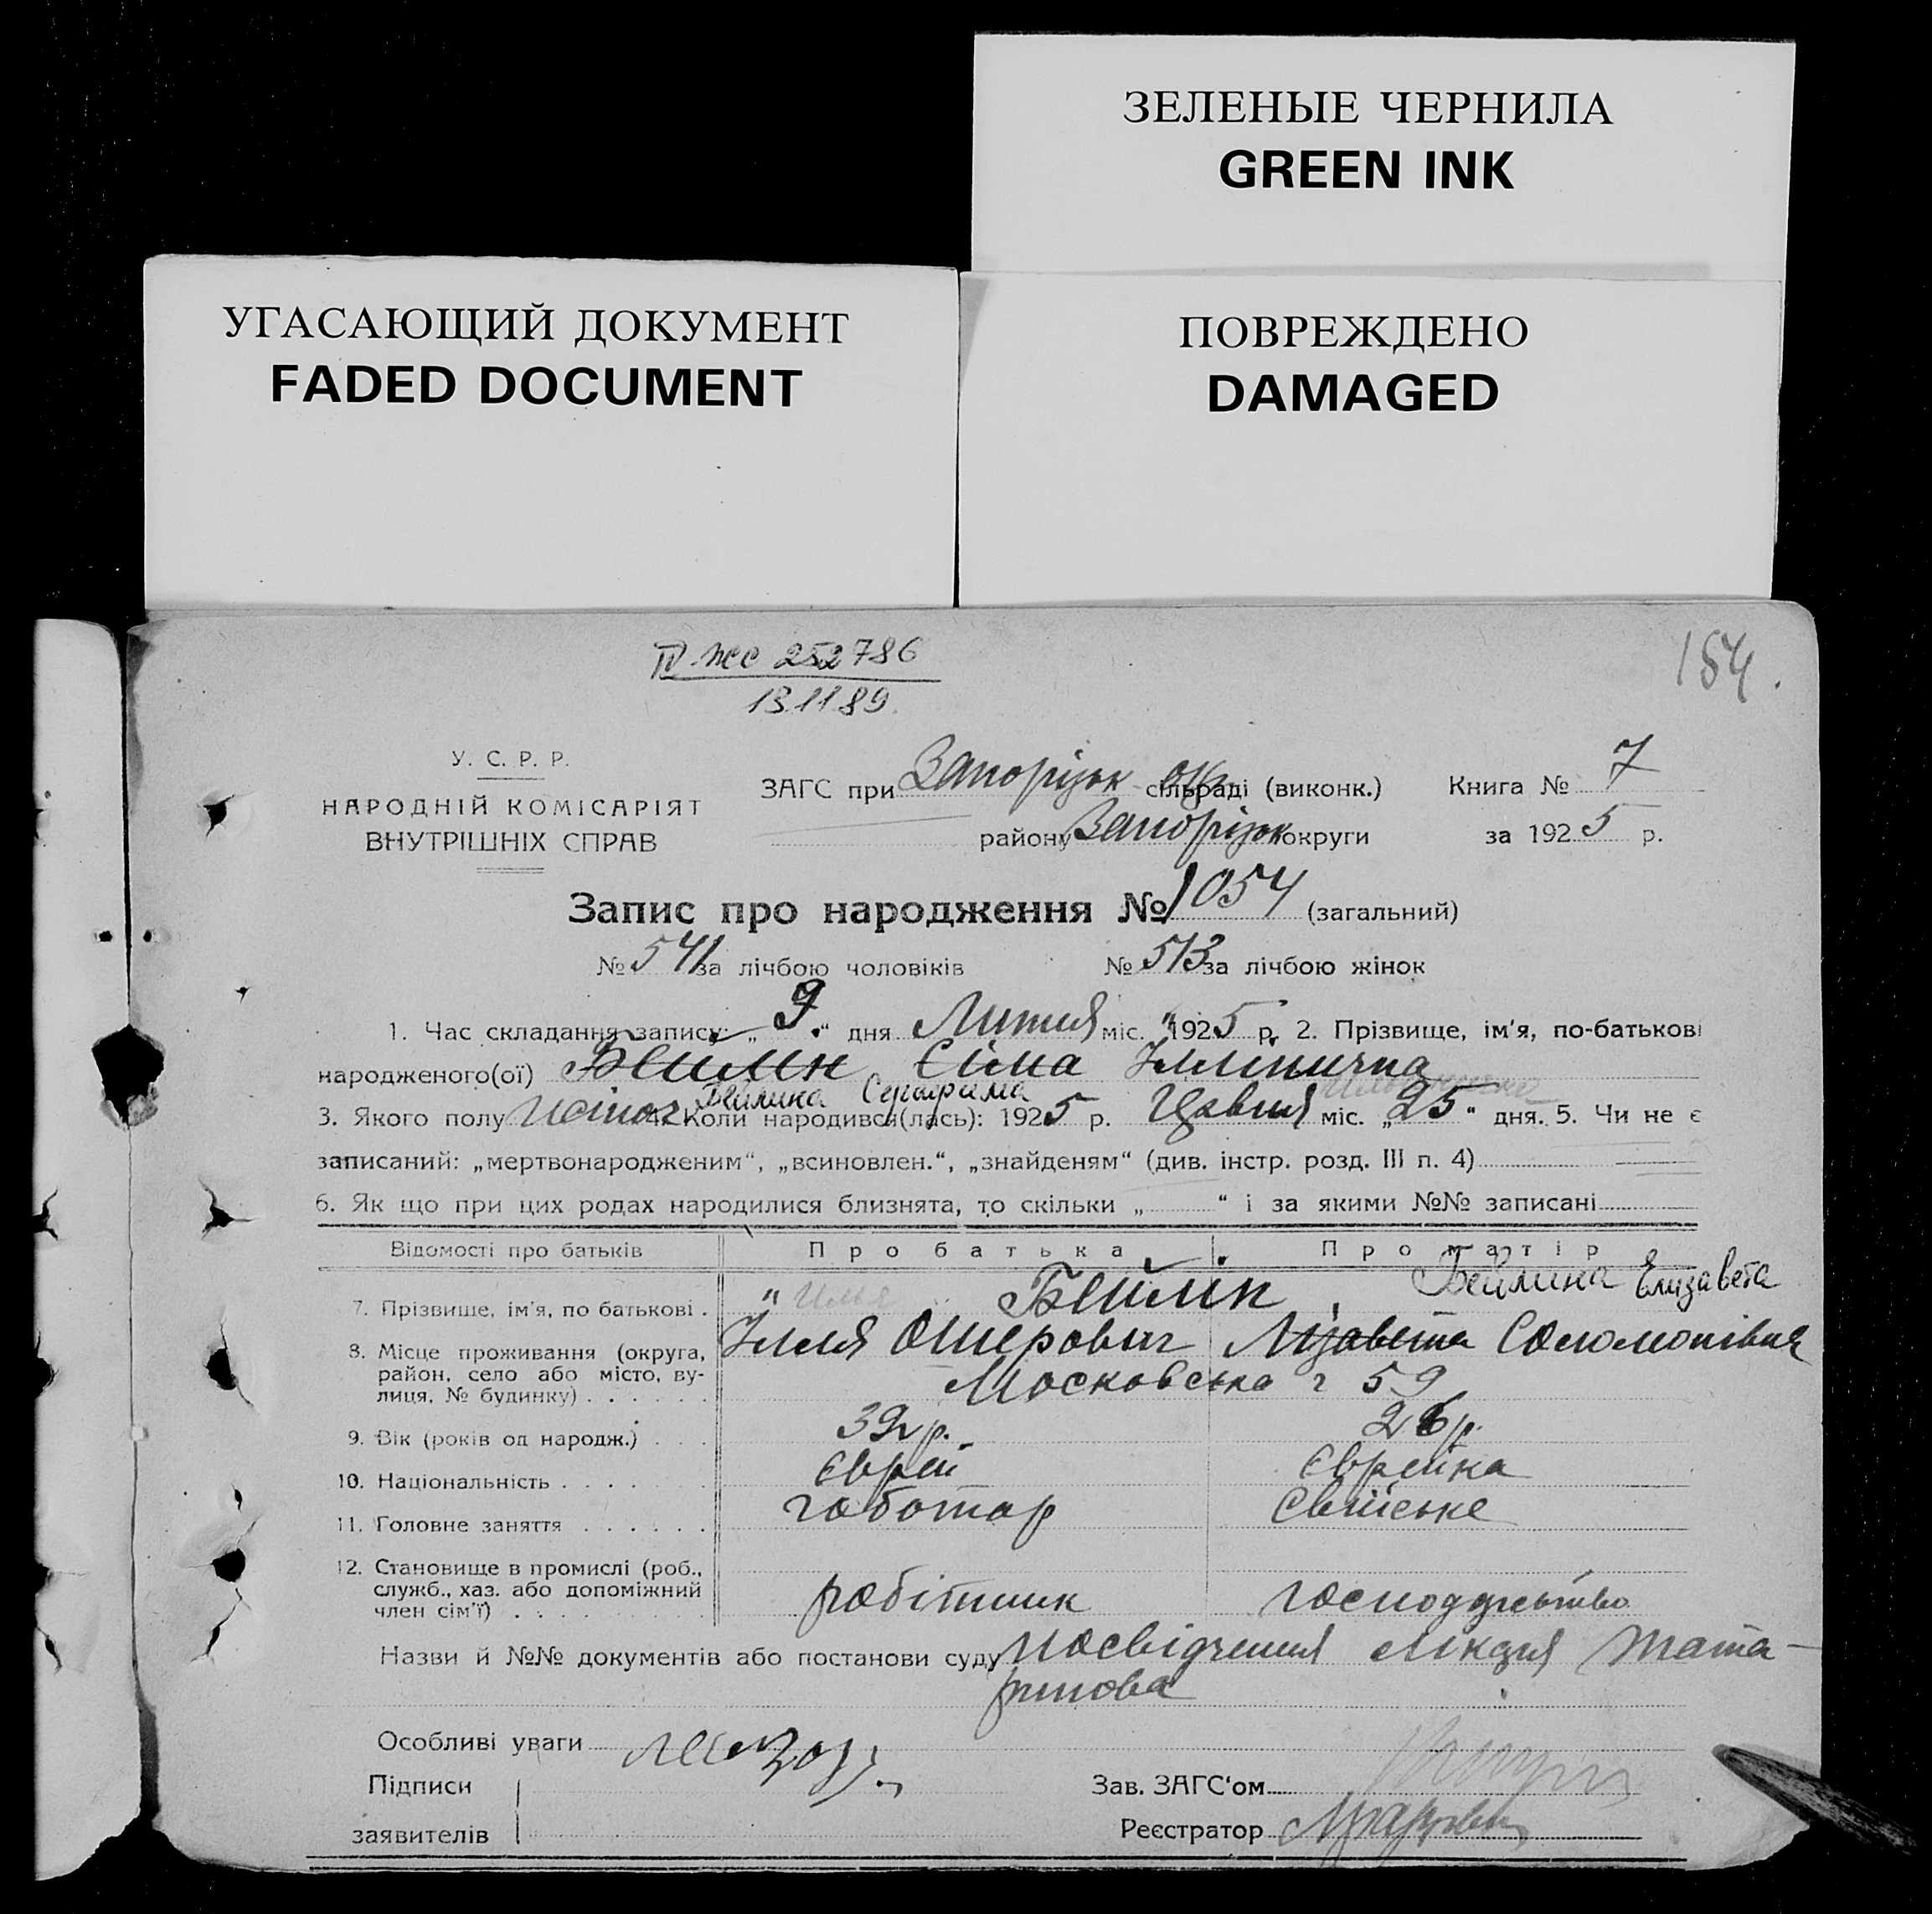 ЗЕЛЕНЫЕ ЧЕРНИЛА
GREEN INK
УГАСАЮЩИЙ ДОКУМЕНТ
FADED DOCUMENT
ПОВРЕЖДЕНО
DAMAGED
IV ЖС 252786
13.11.89.
154.
У. С. Р. Р.
НАРОДНІЙ КОМІСАРІЯТ
ВНУТРІШНІХ СПРАВ
ЗАГС при Запорізьк ок сільраді (виконк.)
району Запорізьк округи
Книга № 7
за 1925 р.
Запис про народження № 1054 (загальний)
№ 541 за лічбою чоловіків № 513 за лічбою жінок
1. Час складання запису: „ 9. “ дня Лютня міс. 1925 р. 2. Прізвище, ім'я, по-батькові
народженого(ої) Бейлін Сіма Іллінична
Бейлина Серафима Ильинична
3. Якого полу жіноч 4. Коли народився(лась): 1925 р. Січня міс. „25“ дня. 5. Чи не є
записаний: „мертвонародженим“, „всиновлен.“, „знайденям“ (див. інстр. розд. III п. 4)
6. Як що при цих родах народилися близнята, то скільки „ “ і за якими №№ записані
Відомості про батьків Про батька Про матір
7. Прізвище, ім'я, по батькові . Илья Бейлін Бейлина Елизавета
Ілля Ошерович Лізавета Соломонівна
8. Місце проживання (округа, район, село або місто, вулиця, № будинку) Московська 59
9. Вік (років од народж.) 39 р. 26 р.
10. Національність Єврей Єврейка
11. Головне заняття Свійське
12. Становище в промислі (роб., служб., хаз. або допоміжний член сім'ї) робітник господарство
Назви й №№ документів або постанови суду посвідчення лікаря Тата-
ринова
Особливі уваги
Підписи
заявителів
Зав. ЗАГС'ом
Реєстратор